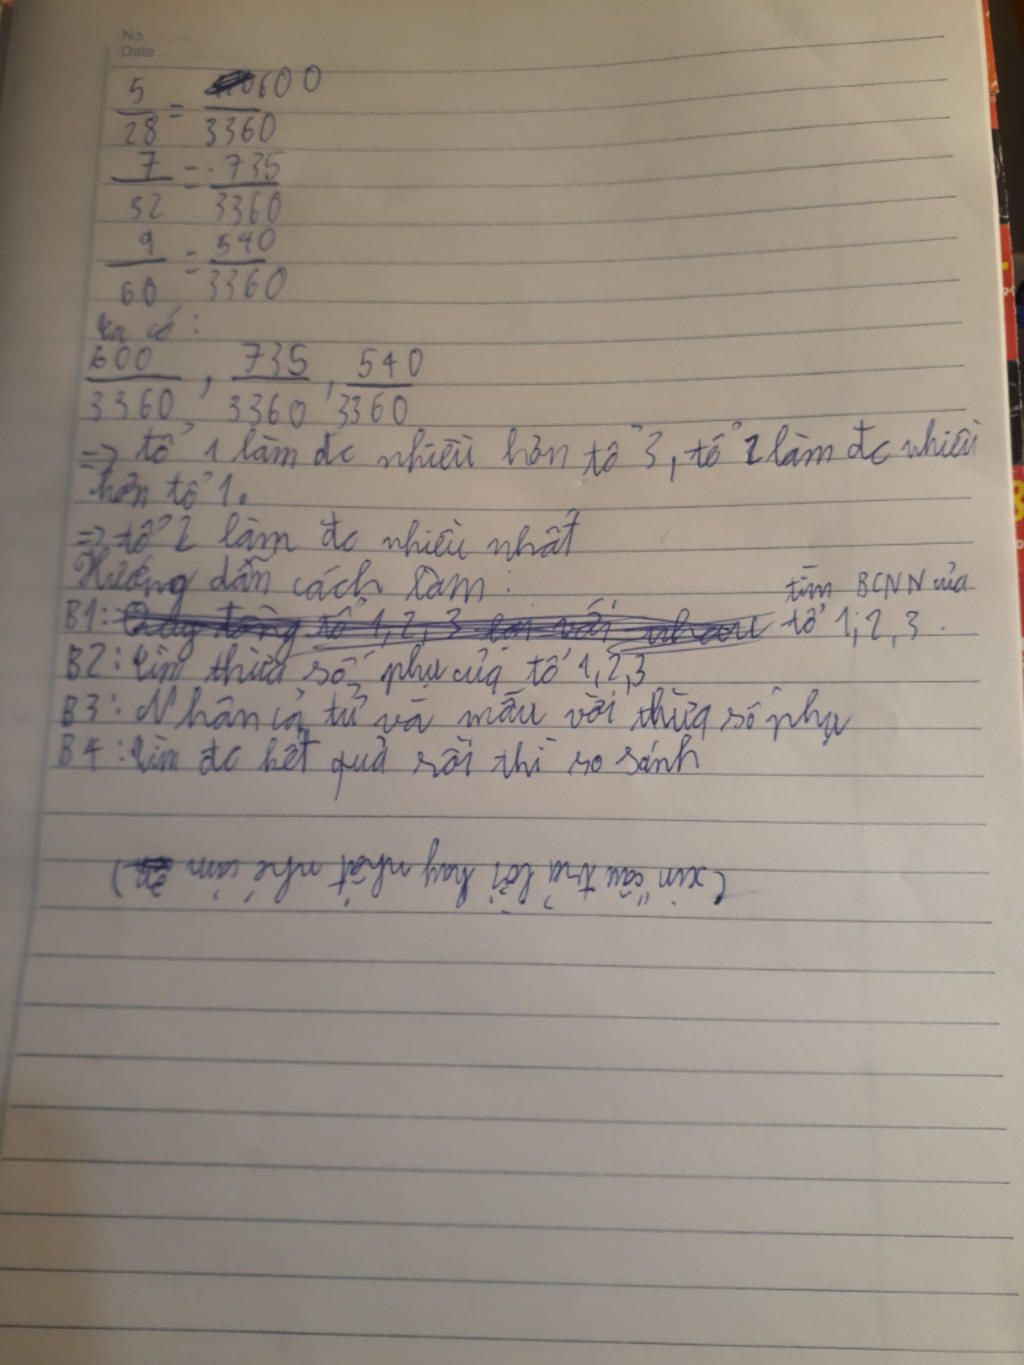 No.
Date
5/28 = 600/3360
7/32 = 735/3360
9/60 = 540/3360
Ta có:
600/3360, 735/3360, 540/3360
=> tổ 1 làm đc nhiều hơn tổ 3, tổ 2 làm đc nhiều
hơn tổ 1.
=> tổ 2 làm đc nhiều nhất
Hướng dẫn cách làm:
B1: tìm BCNN của tổ 1, 2, 3.
B2: tìm thừa số phụ của tổ 1, 2, 3
B3: Nhân cả tử và mẫu với thừa số phụ
B4: tìm đc kết quả rồi thì so sánh
(xin câu trả lời hay nhất nhé cảm ơn)